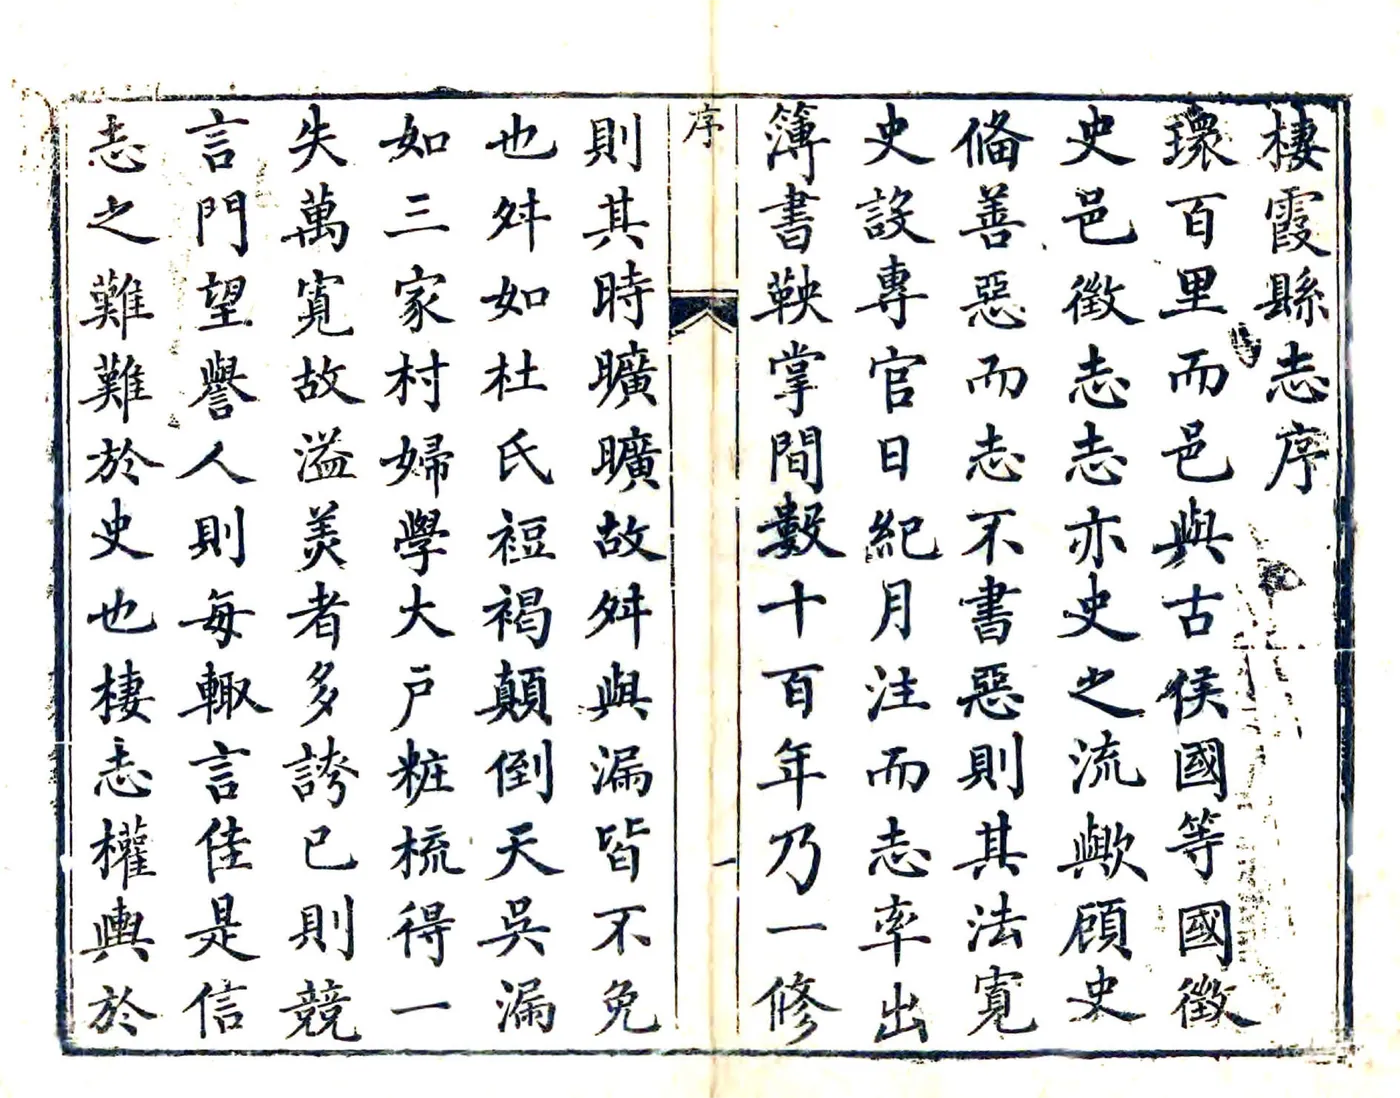 棲霞縣志序
環百里而邑與古侯國等國徵
史邑徵志志亦史之流歟顧史
俻善惡而志不書惡則其法寬
史設專官日紀月注而志率出
簿書鞅掌間數十百年乃一修
序
一
則其時曠曠故舛與漏皆不免
也舛如杜氏裋褐顛倒天吳漏
如三家村婦學大戶粧梳得一
失萬寬故溢美者多誇已則競
言門望譽人則每輙言佳是信
志之難難於史也棲志權輿於